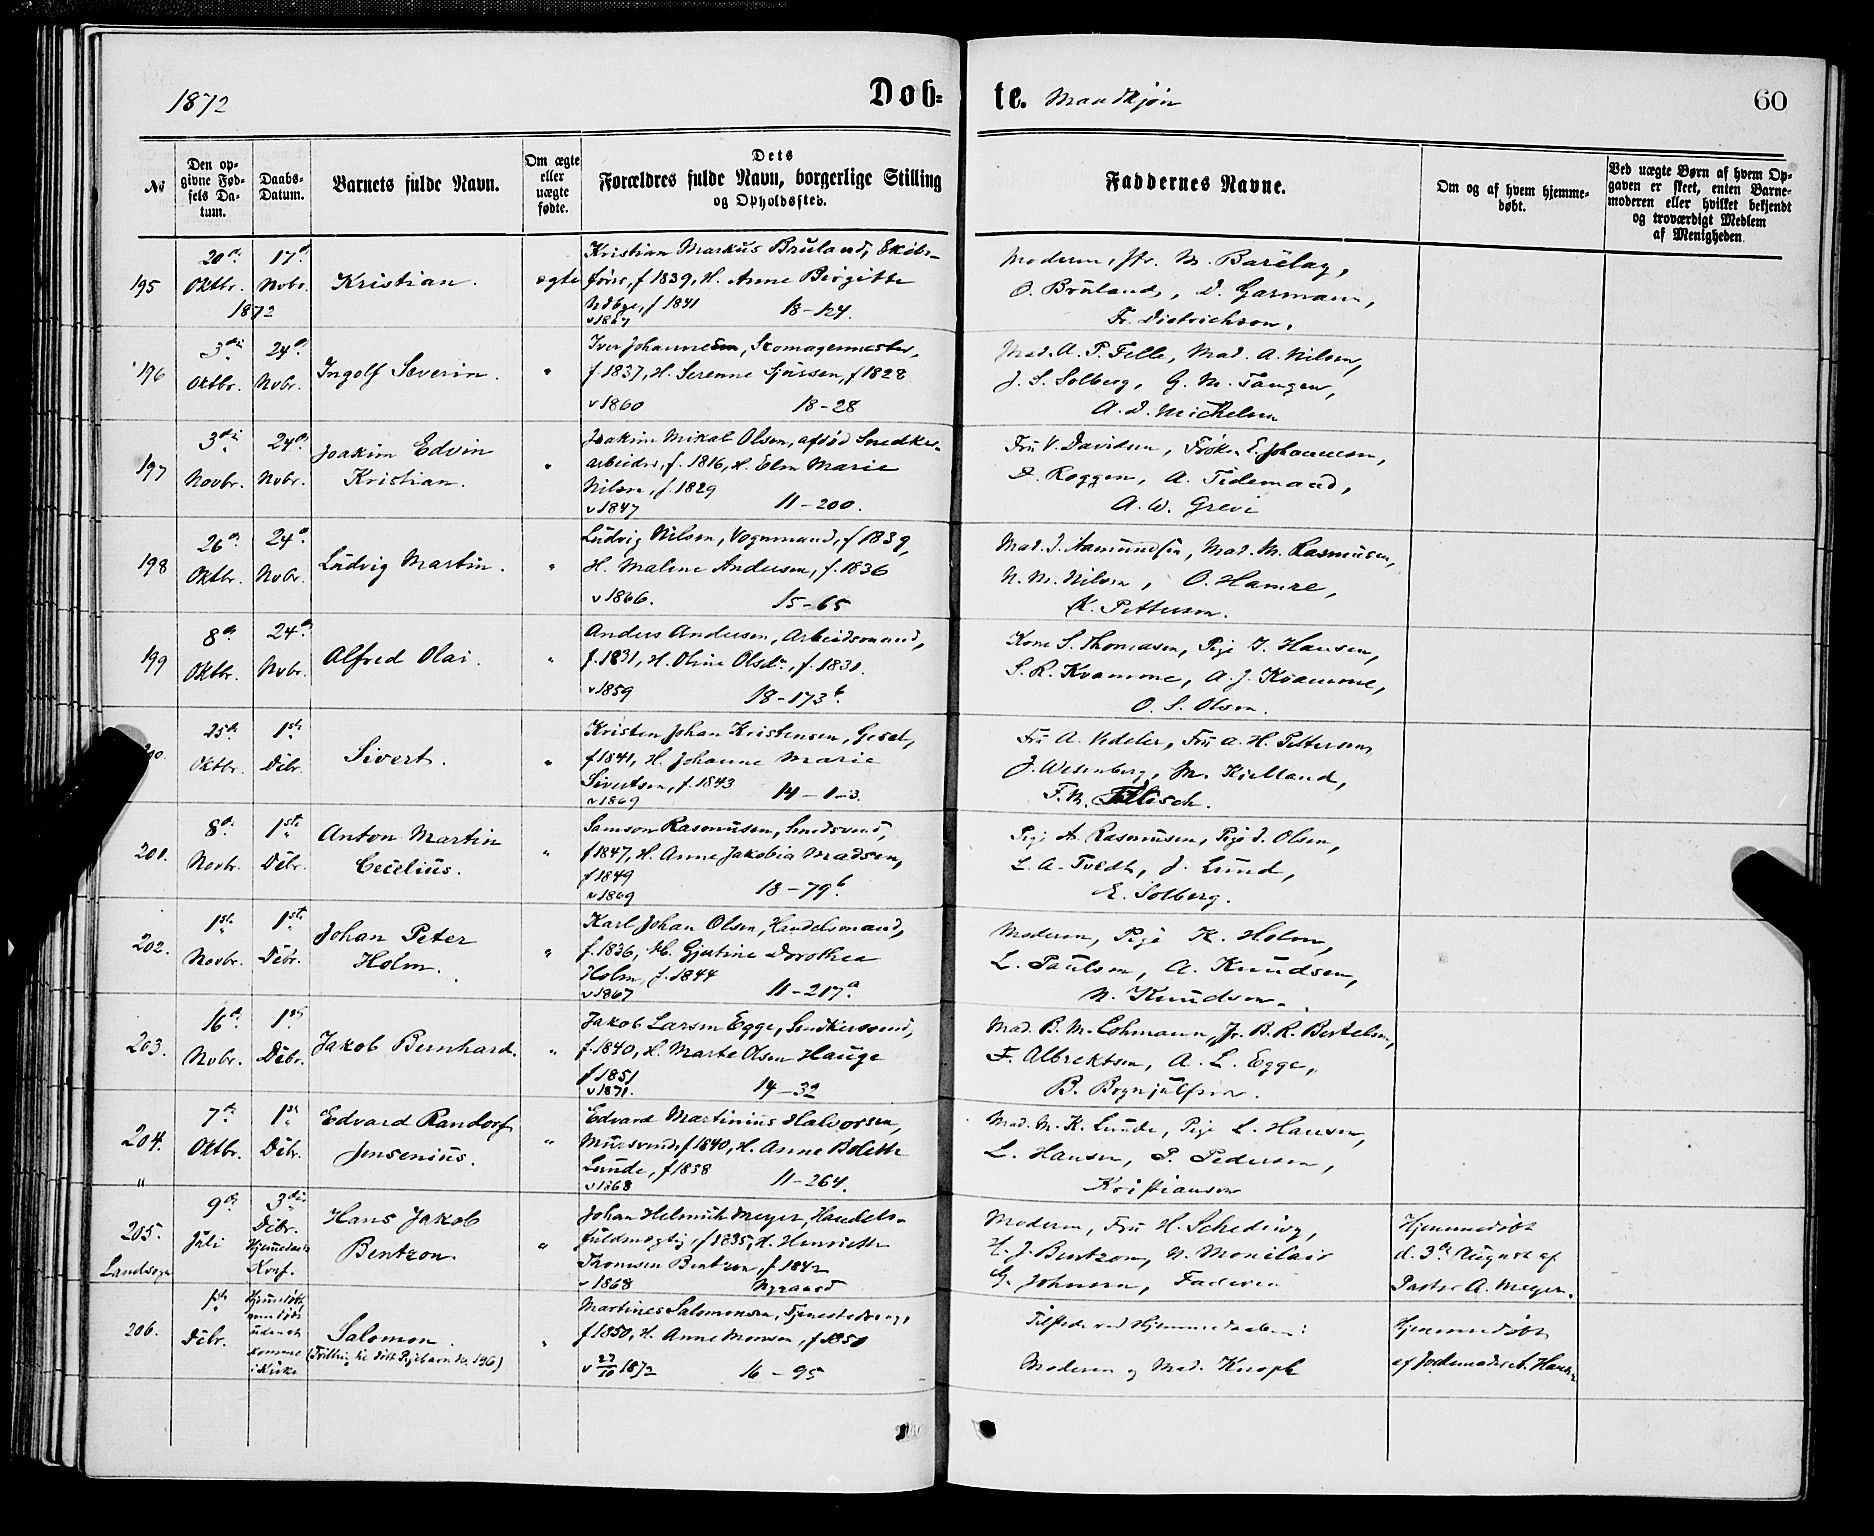 1872
Døb- te. Mandkjøn
60
No
Den opgivne Fødsels Datum.
Daabs-Datum.
Barnets fulde Navn.
Om ægte eller uægte fødte.
Dets Forældres fulde Navn, borgerlige Stilling og Opholdssted.
Faddernes Navne.
Om og af hvem hjemmedøbt.
Ved uægte Børn af hvem Opgaven er skeet, enten Barnemoderen eller hvilket bekjendt og troværdigt Medlem af Menigheden.
195
20de Oktbr. 1872
17de Novbr.
Kristian.
ægte
Kristian Markus Bruland,
f 1839, H. Anne Birgitte
f 1841
v 1867 18-124.
Moderen, M. Barclay,
O. Bruland, D. Garmann,
Fr. Dietrichson.
196
3die Oktbr.
24de Novbr.
Ingolf Severin.
"
Iver Johannesen, Skomagermester,
f 1837, H. Serenne Sjursen, f 1828
v 1860 18-28
Mad. A. P. Felle, Mad. A. Nilsen,
J. S. Solberg, G. M. Tangen,
A. D. Michelsen
197
3die Novbr.
24de Nvbr.
Joakim Edvin
Kristian.
"
Joakim Mikal Olsen, afdød Snedker-
arbeider, f. 1816, H. Elen Marie
Nilsen, f. 1829
v 1847 11-200.
Fru V. Davidsen, Frøken E. Johannesen,
D. Roggen, A. Tidemand,
A. W. Greve
198
26de Oktbr.
24de Nvbr.
Ludvig Martin.
"
Ludvig Nilsen, Vognmand, f 1839,
H. Malene Andersen, f. 1836
v 1866. 15-65
Mad. J. Aamundsen, Mad. M. Rasmusen,
N. M. Nilsen, O. Hamre,
K. Pettersen.
199
8de Oktbr.
24de Nvbr.
Alfred Olai.
"
Anders Andersen, Arbeidsmand,
f. 1831, H. Oline Olsdr., f. 1831.
v 1859 18-173b.
Kone S. Thomasen, Pige J. Hansen,
S. R. Kvamme, A. J. Kvamme,
O. S. Olsen.
25de Oktbr.
1ste Debr.
Sivert.
"
Kristen Johan Kristensen,
f 1841, H. Johanne Marie
Sivertsen, f. 1843
v 1869 14-1-3.
Fru A. Vedeler, Fru A. H. Pettersen,
J. Wesenberg, M. Kielland,
201.
8de Novbr.
1ste Debr.
Anton Martin
Cecelius.
"
Samson Rasmusen, Smedsvend,
f 1847, H. Anne Jakobia Madsen,
f 1849
v 1869 18-79b
Pige A. Rasmusen, Pige J. Olsen,
L. A. Tvedt, J. Lund,
E. Solberg.
202.
1ste Novbr.
1ste Debr.
Johan Peter
Holm.
"
Karl Johan Olsen, Handelsmand,
f. 1836, H. Gjertine Dorothea
Holm, f. 1844
v 1867 11-217a.
Moderen, Pige K. Holm,
L. Paulsen, A. Knudsen,
N. Knudsen.
203.
16de Nvbr.
1ste Debr.
Jakob Bernhard.
"
Jakob Larsen Egge, Snedkersvend,
f. 1840, H. Marte Olsen Hauge
f 1851
v 1871. 14-32
Mad. B. M. Lohmann, Jr. B. R. Bertelsen,
F. Albrektsen, A. L. Egge,
B. Brynjulfsen.
204.
"
7de Oktbr.
1ste Debr.
Edvard Randorf
Jensenius.
"
Edvard Martinius Halvorsen,
Mursvend, f 1840, H. Anne Bolette
Lunde, f 1838
v 1868 11-264.
Mad. M. K. Lunde, Pige L. Hansen,
L. Hansen, P. Pedersen,
Kristiansen
205.
9de Juli
3die Debr.
Hans Jakob
Bentzon.
"
Johan Helmich Meyer, Handels-
fuldmægtig, f 1835, H. Henriette
Thomsen Bentzon, f 1842
v 1868 Nygaard
Moderen, Fru H. Scheding,
H. J. Bentzon, N. Monclair
G. Johnsen, Faderen
Hjemmedøbt
d. 3die August af
Pastor A. Meyer.
206.
1ste Debr.
Hjemmedøbt
Salomon.
(Tvilling til døbt Pigebarn No. 196)
"
Martines Salomonsen, Tjenestedreng,
f 1850, H. Anne Monsen, f 1850
v 27/10 1872 16-95
Tilstede ved Hjemmedaaben:
Moderen og Mad. Knoph
Hjemmedøbt
af Jordemoder A. Hansen